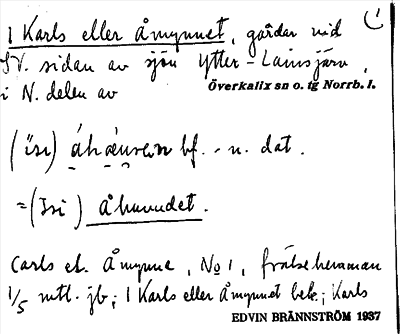 1 Karls eller Åmynnet, gårdar vid
SV. sidan av sjön Ytter-Lainsjärv,
i N. delen av
Överkalix sn o. tg Norrb. l.
(isi) bf. - n. dat.
=(Isi) Åhuvudet.
Carls el. Åmynne, No 1, frälsehemman
1/5 mtl. jb; 1 Karls eller Åmynnet bek.; Karls
EDVIN BRÄNNSTRÖM 1937